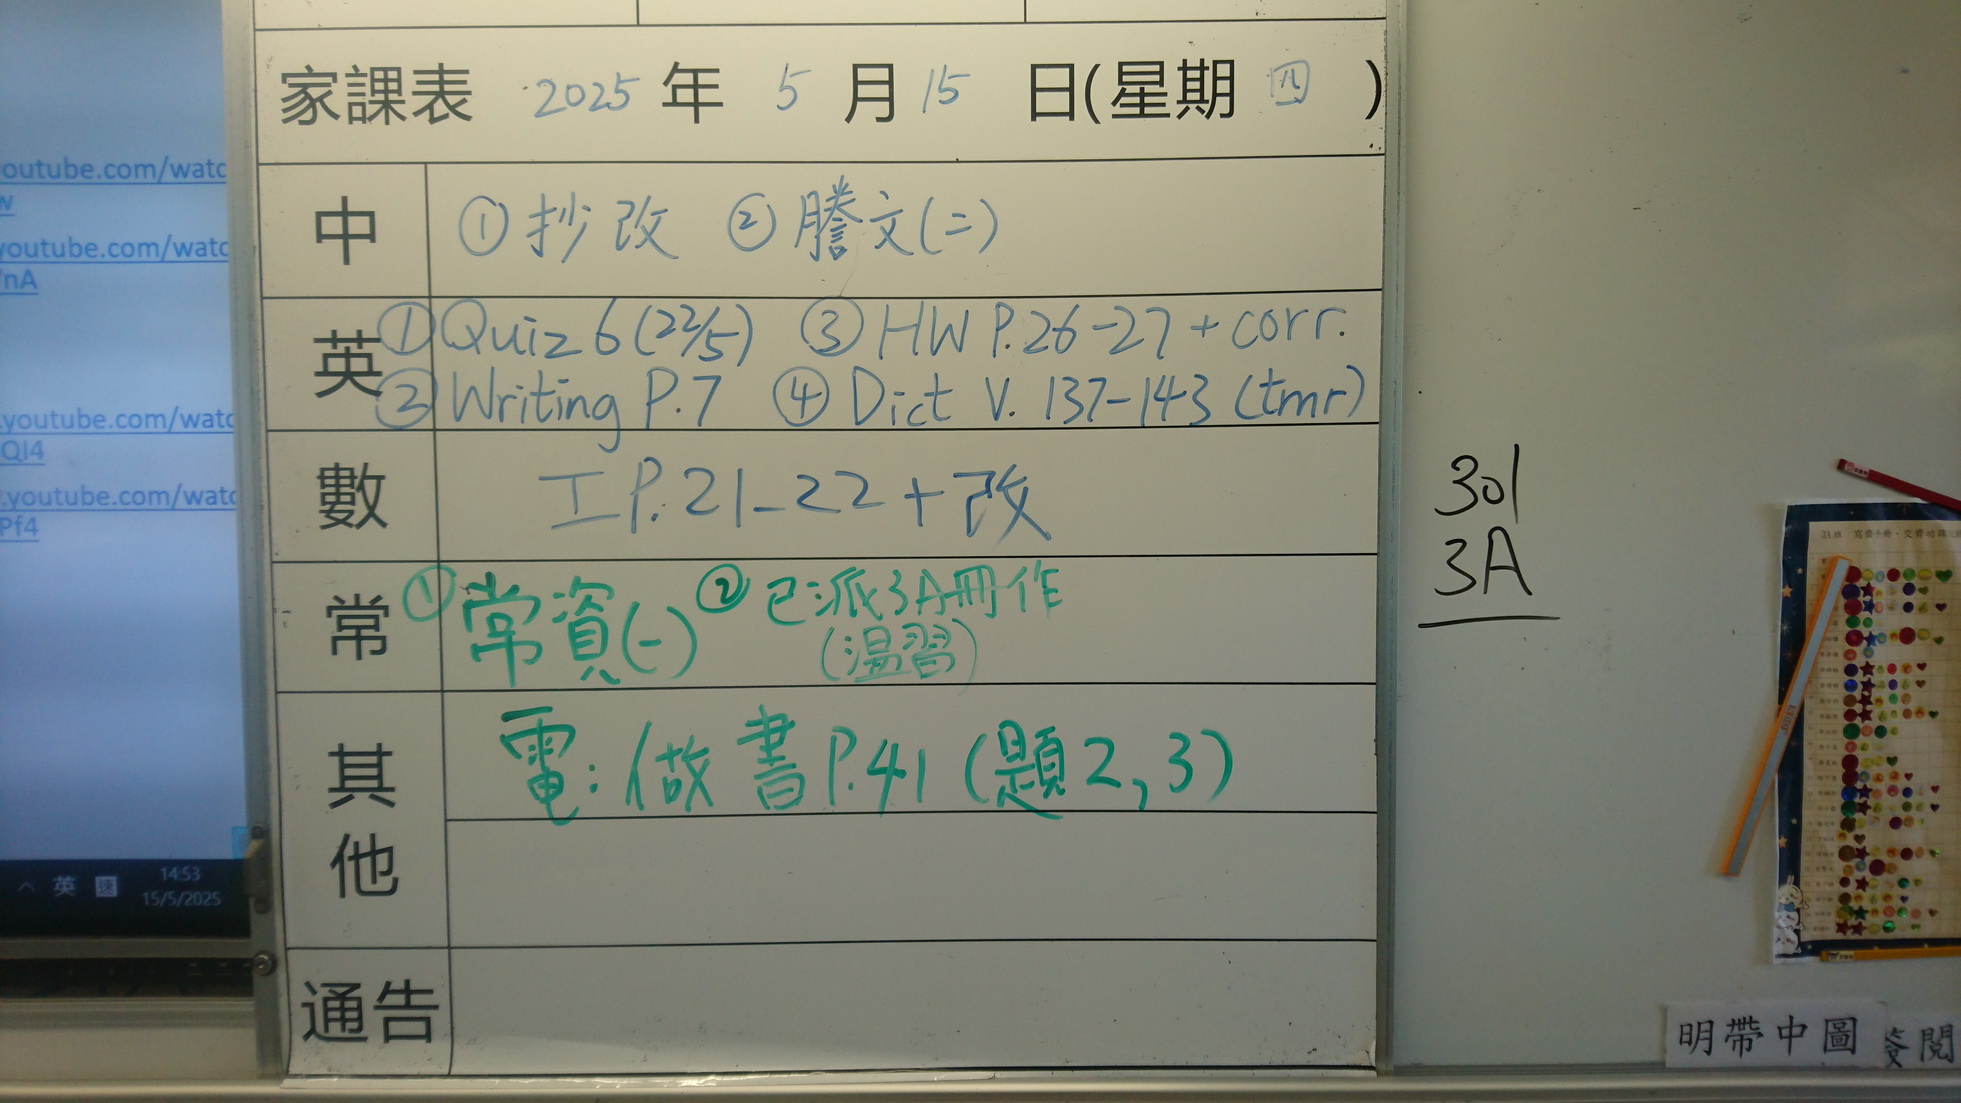 youtube.com/watc
w
youtube.com/watc
nA
.youtube.com/watc
QI4
.youtube.com/watc
Pf4
英 速 14:53
15/5/2025
家課表 2025 年 5 月 15 日(星期 四 )
中 ①抄改 ②謄文(二)
英 ①Quiz 6 (22/5) ③HW P.26-27 + corr.
②Writing P.7 ④Dict V. 137-143 (tmr)
數 工 P.21-22 + 改
常 ①常資(一) ②已派3A冊作
(溫習)
其他 電:做書P.41 (題2,3)
通告
301
3A
明帶中圖
簽閱